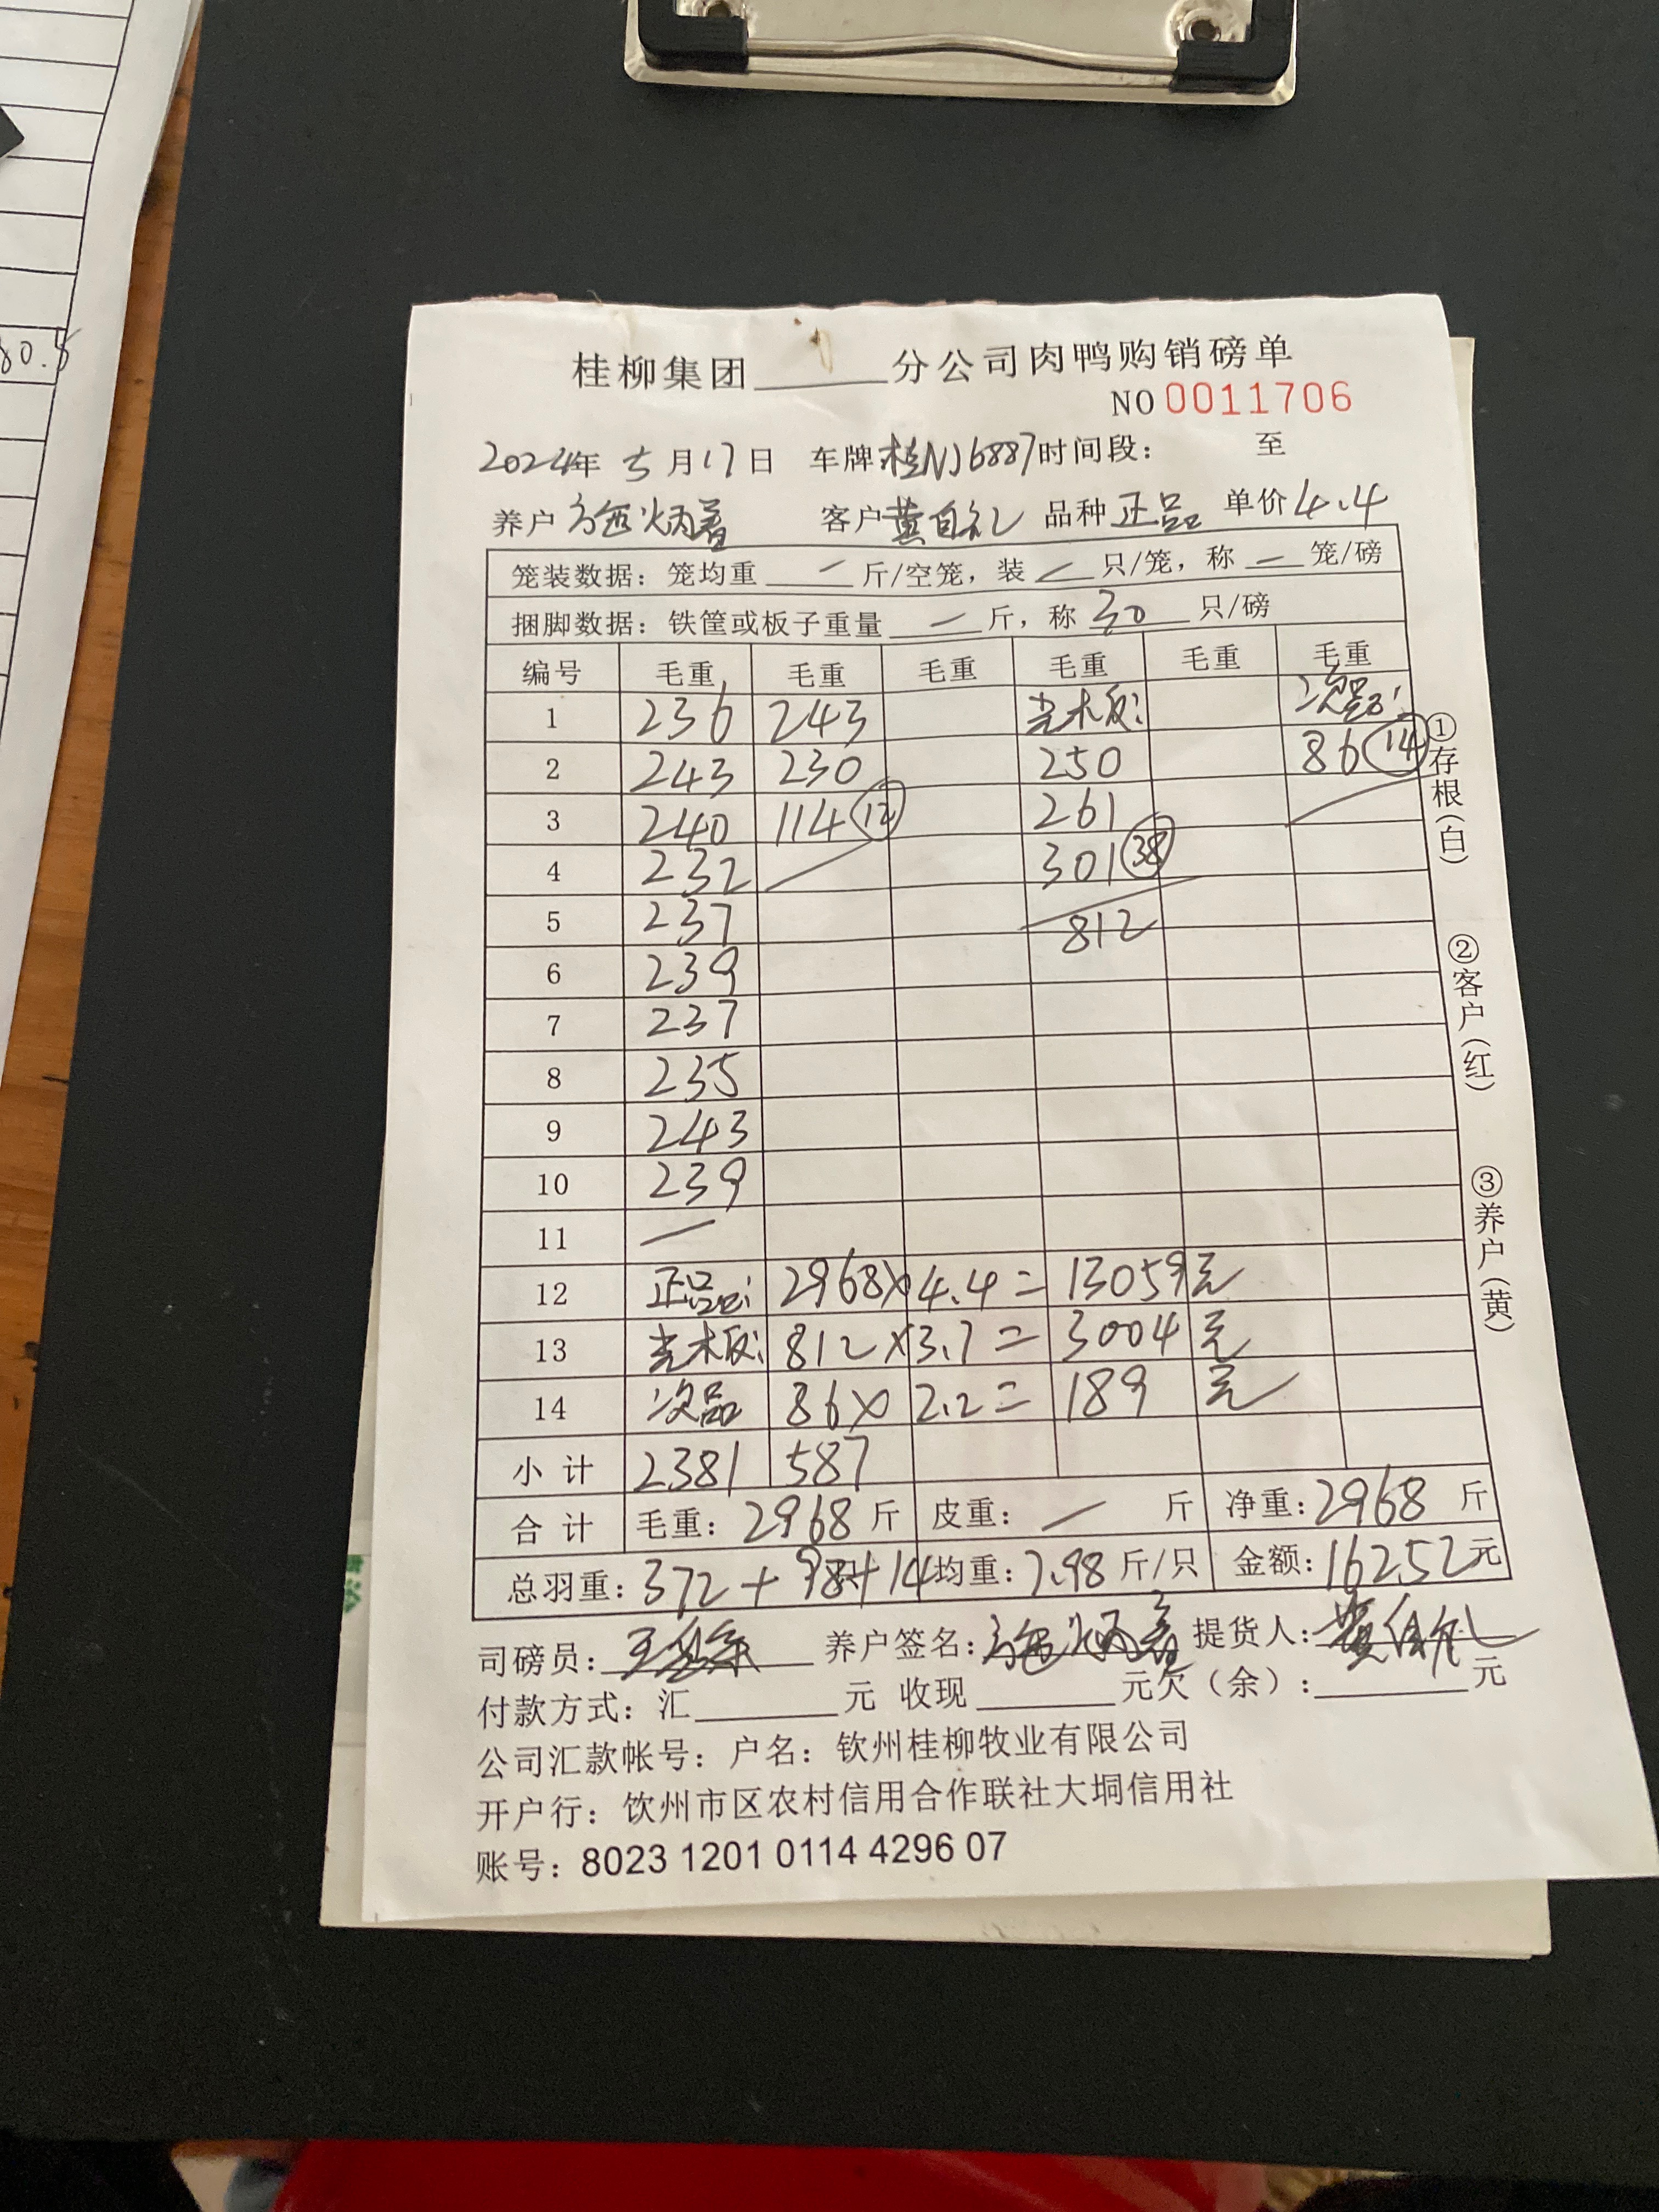 80.5
桂柳集团______分公司肉鸭购销磅单
NO 0011706
2024年 5月17日 车牌桂NJ6887时间段: 至
养户 客户黄自礼 品种正品 单价4.4
笼装数据: 笼均重 — 斤/空笼, 装 — 只/笼, 称 — 笼/磅
捆脚数据: 铁筐或板子重量 — 斤, 称 30 只/磅
编号 毛重 毛重 毛重 毛重 毛重 毛重
1 236 243 光木板: 次品:
2 243 230 250 86 ⑭
3 240 114 ⑫ 261
4 232 301 ㊳
5 237 812
6 239
7 237
8 235
9 243
10 239
11 —
12 正品: 2968×4.4=13059元
13 光木板: 812×3.7=3004元
14 次品 86×2.2=189元
小计 2381 587
合计 毛重: 2968斤 皮重: — 斤 净重: 2968斤
总羽重: 372+98+14 均重: 7.98斤/只 金额: 16252元
司磅员: 养户签名: 提货人:
付款方式: 汇______元 收现______元欠(余):______元
公司汇款帐号: 户名: 钦州桂柳牧业有限公司
开户行: 饮州市区农村信用合作联社大垌信用社
账号: 8023 1201 0114 4296 07
①存根(白) ②客户(红) ③养户(黄)